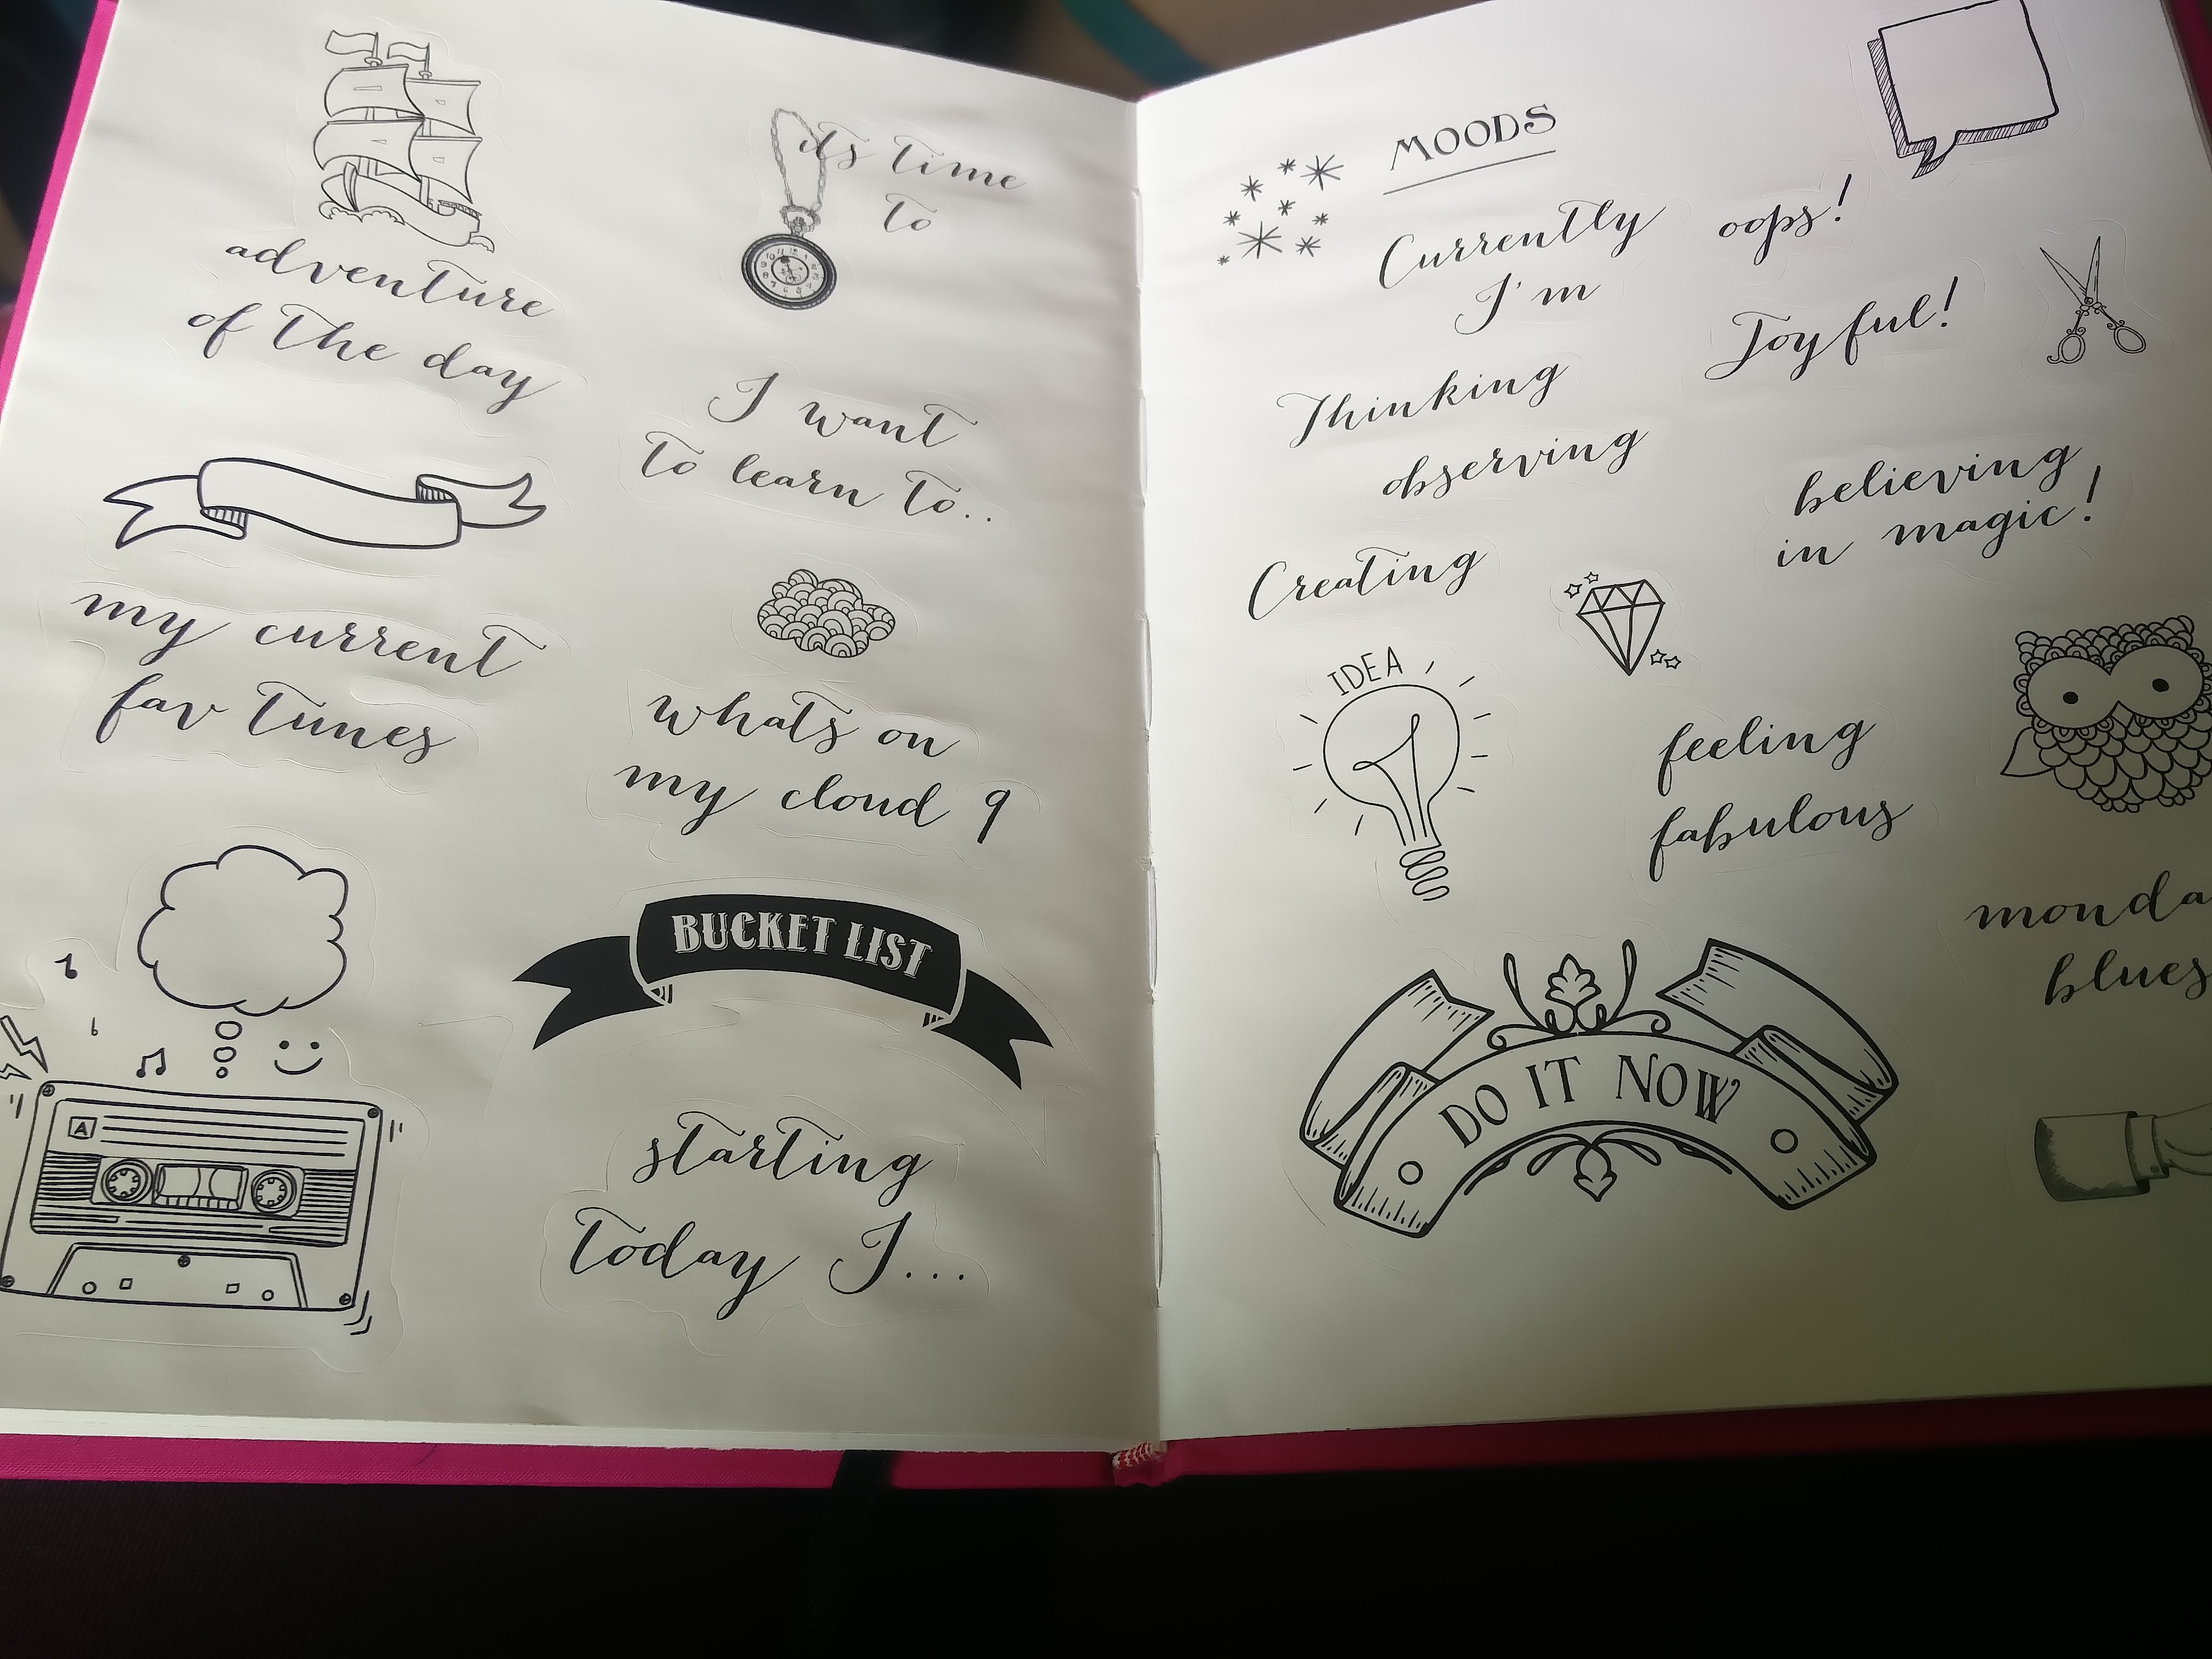 adventure
of the day
its time
to
I want
to learn to..
my current
fav tunes
whats on
my cloud 9
BUCKET LIST
A
starting
today I...
MOODS
Currently
I'm
oops!
Joyful!
Thinking
observing
believing
in magic!
Creating
IDEA
feeling
fabulous
monda
blues
DO IT NOW